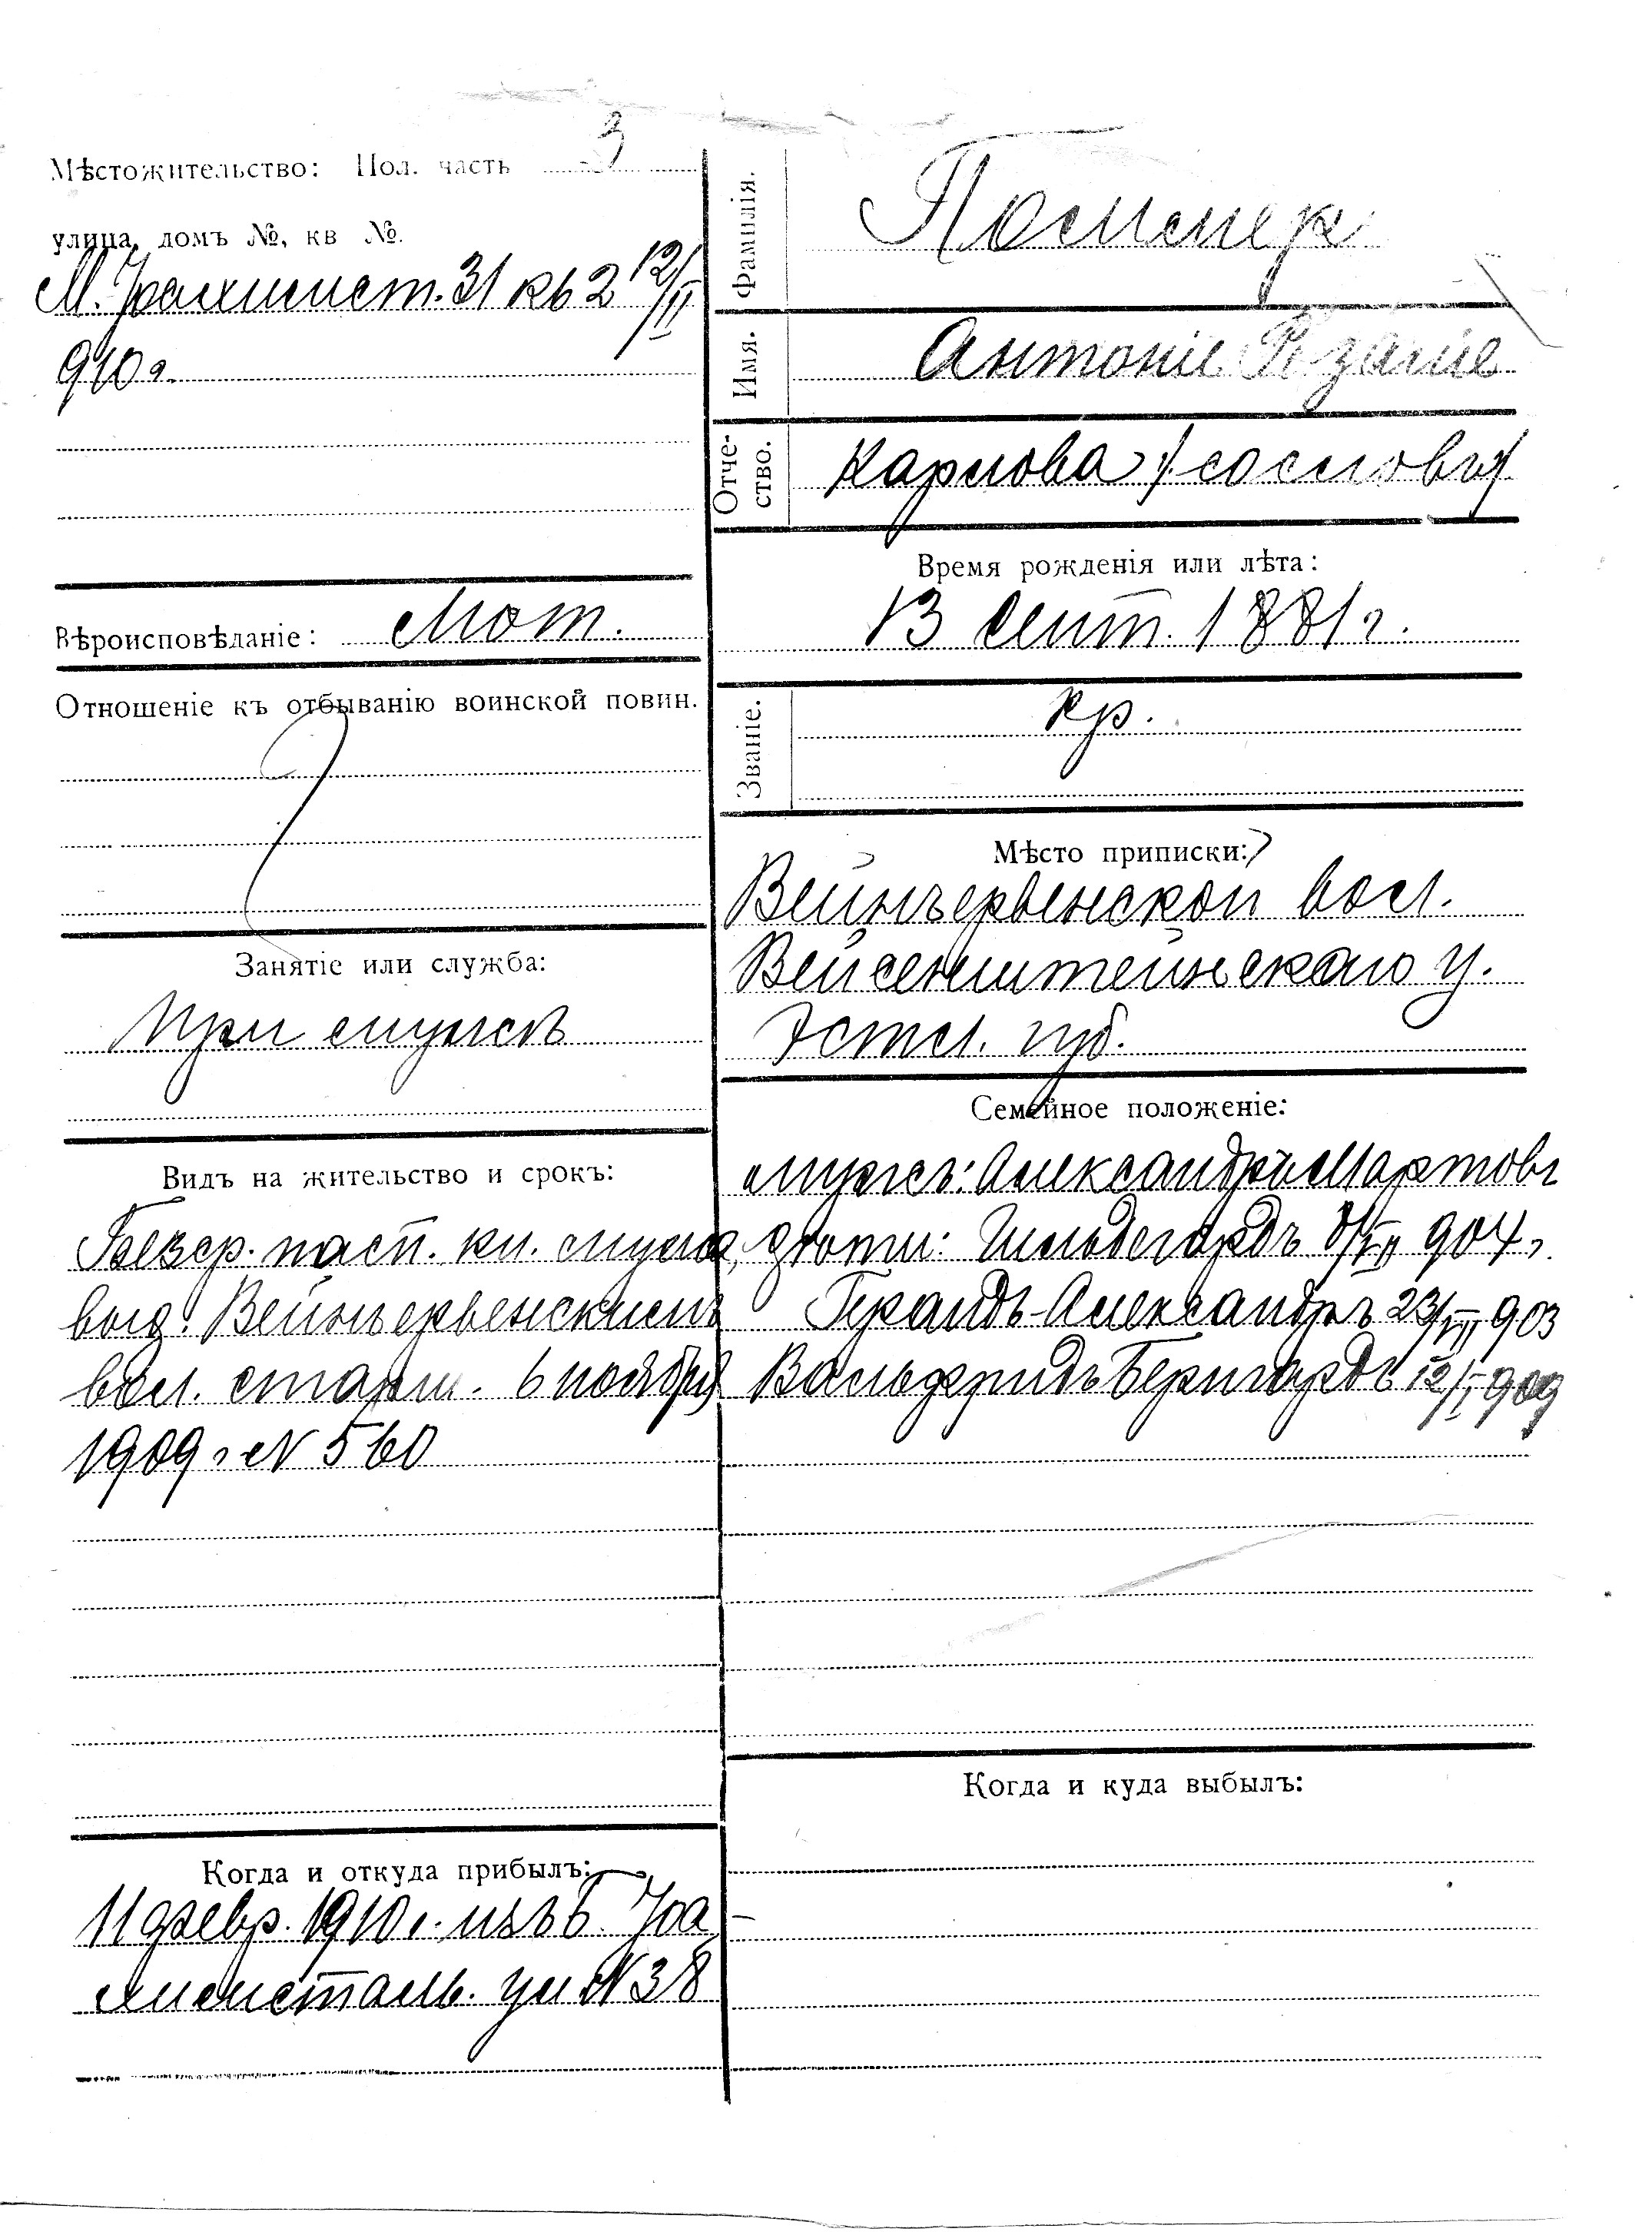 Мѣстожительство: Пол. часть 3
улица, домъ №, кв №.
31 кв 2 12/II
910 г.
Вѣроисповѣданіе: Лют.
Отношеніе къ отбыванію воинской повин.
Занятіе или служба:
При мужѣ
Видъ на жительство и срокъ:
Безср. пасп. кн. мужа,
выд. Вейнъервенскимъ
вол. старш. 6 ноября
1909 г. № 560
Когда и откуда прибылъ:
11 февр. 1910 г. изъ б. Іоа
химсталь. ул № 38
Фамилія.
Имя. Антоніе Розаліе
Отчество. Карлова
Время рожденія или лѣта:
13 Сент. 1881 г.
Званіе. кр.
Мѣсто приписки:
Вейнъервенской вол.
Вейсенштейнскаго у.
Эстл. губ.
Семейное положеніе:
мужъ: Александръ Мартовъ
дѣти: Хильдегардъ 904,
Геральдъ-Александръ 23/VII 903
Вальфридъ Бернгардъ 12/I 909
Когда и куда выбылъ: